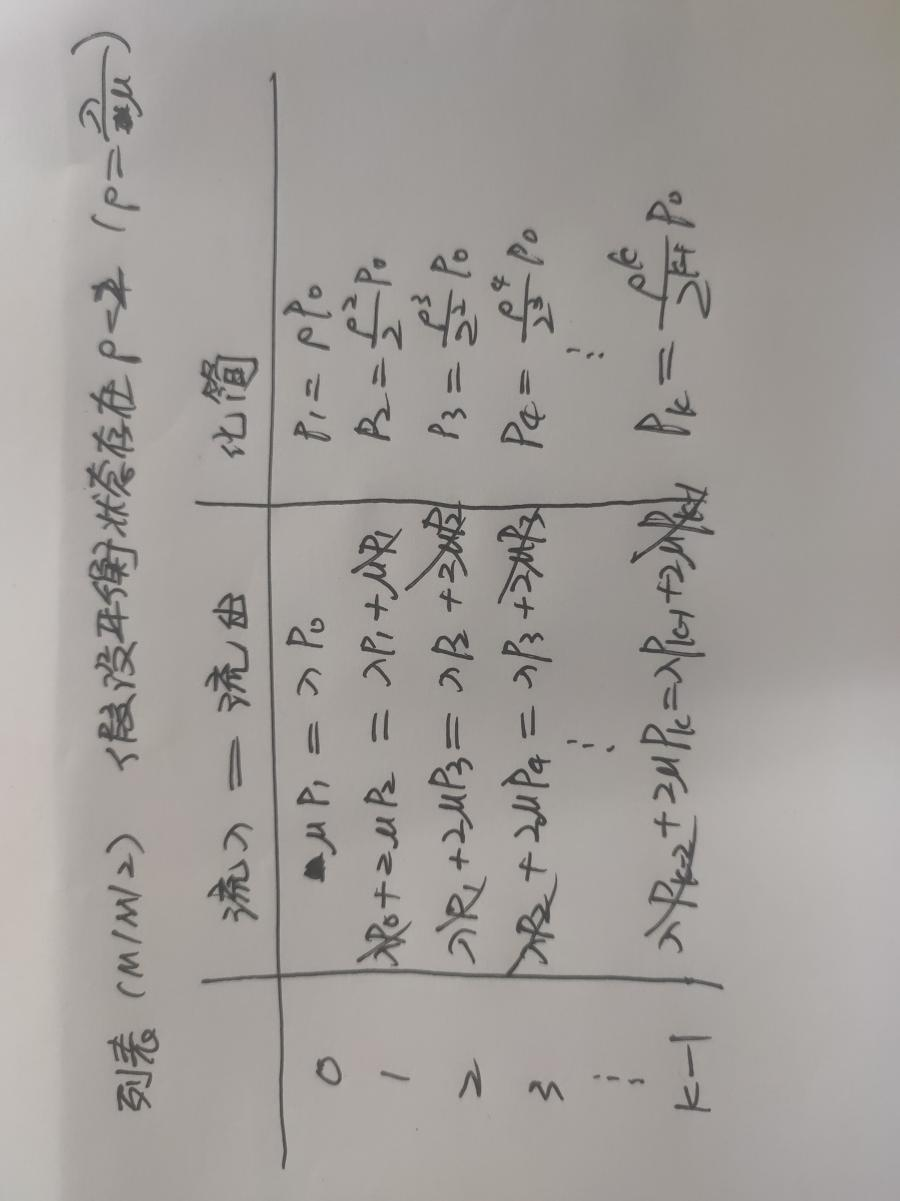 列表 (M/M/2) 假设平衡状态存在 (ρ=λ/μ)
流入 = 流出 化简
0 μP₁ = λP₀ P₁ = ρP₀
1 λP₀+2μP₂ = λP₁+μP₁ P₂ = ρ²/2 P₀
2 λP₁+2μP₃ = λP₂+2μP₂ P₃ = ρ³/2² P₀
3 λP₂+2μP₄ = λP₃+2μP₃ P₄ = ρ⁴/2³ P₀
⋮ ⋮ ⋮
k-1 λPₖ₋₂+2μPₖ=λPₖ₋₁+2μPₖ₋₁ Pₖ = ρᵏ/2ᵏ⁻¹ P₀